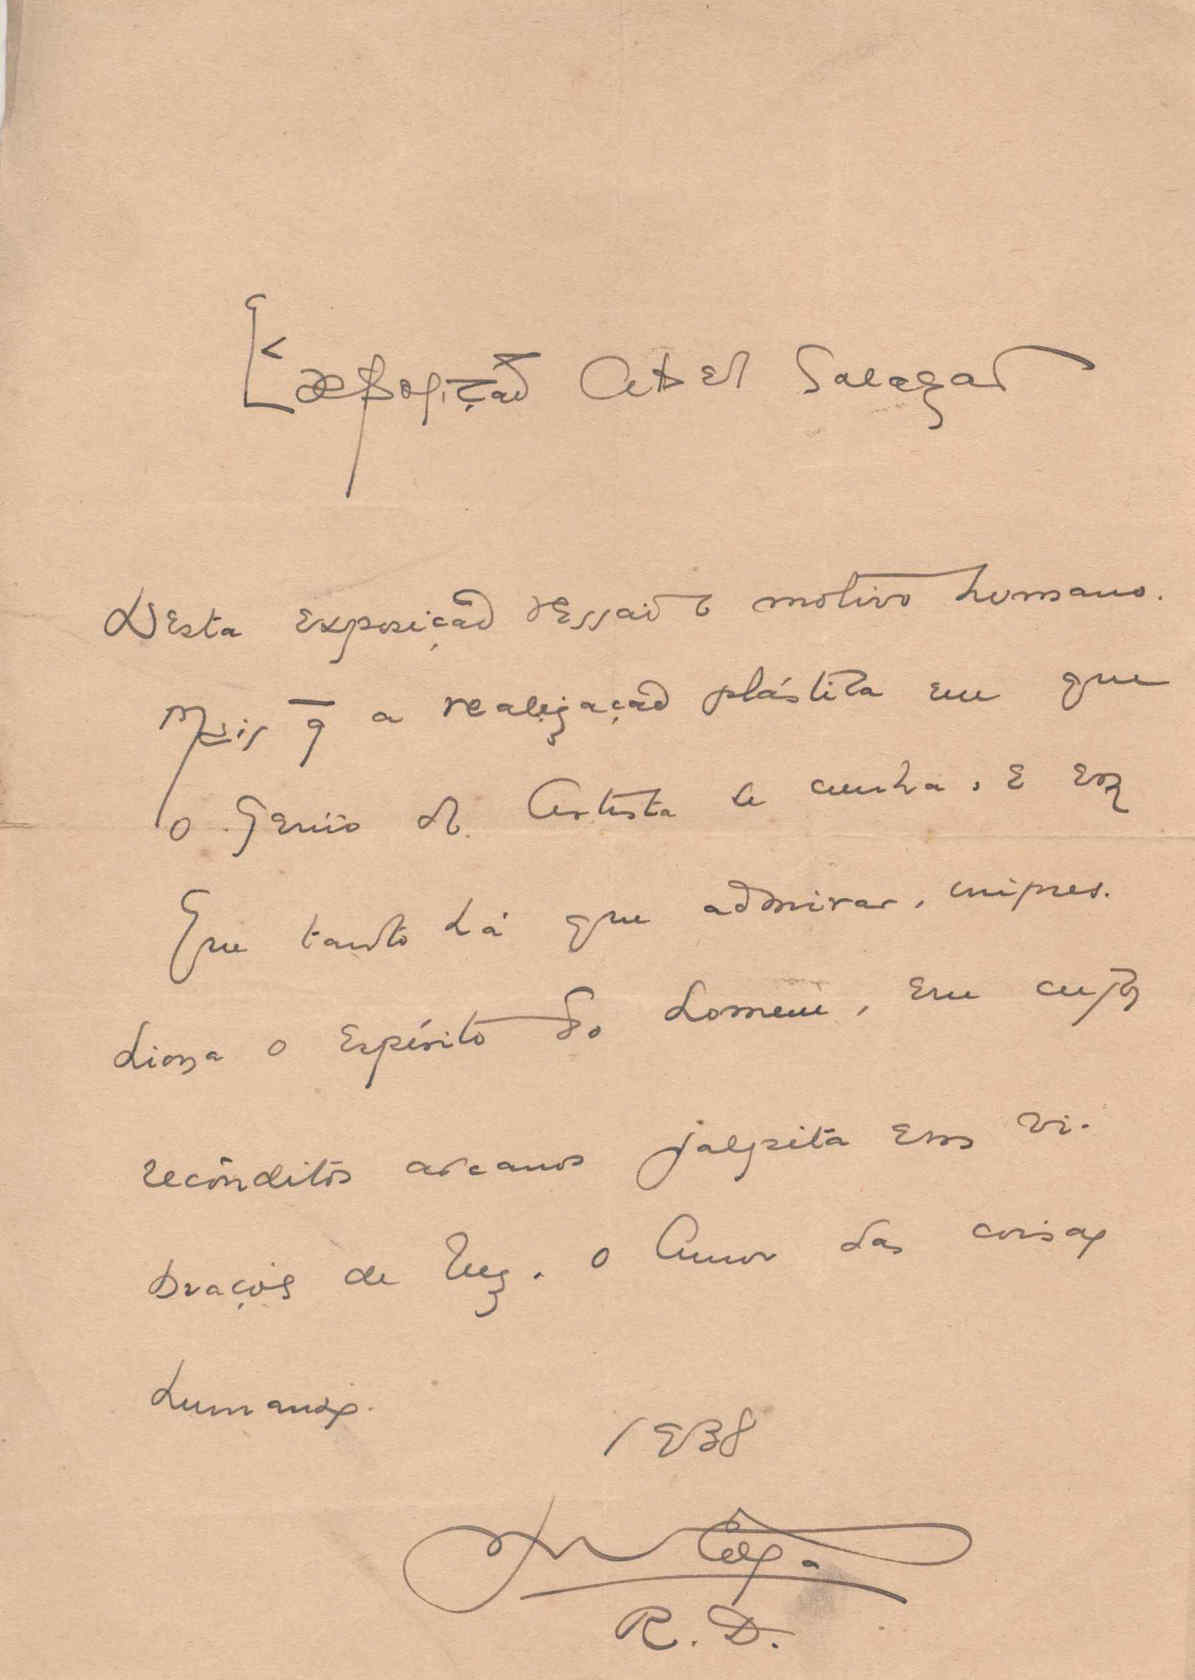 Exposição Abel Salazar
Desta exposição ressai o motivo humano.
Mais q̄ a realização plástica em que
o Genio do Artista se cunha, e em
Que tanto há que admirar, impres.
siona o Espírito do Homem, em cujos
recônditos arcanos palpita em vi.
braçõis de luz. o Amor das coisas
humanas.
1938
R. D.